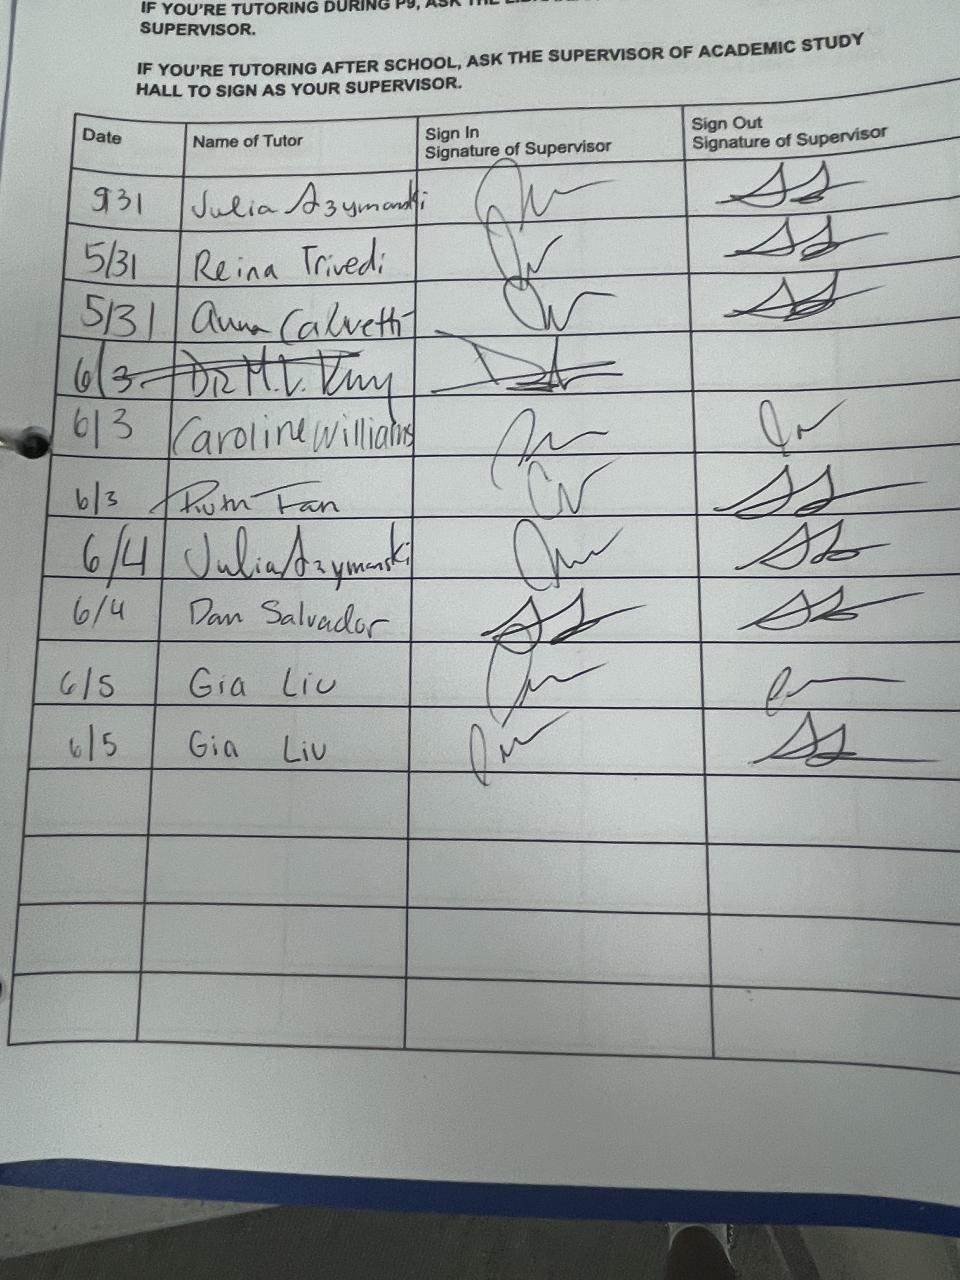 IF YOU'RE TUTORING DURING P9, ASK THE
SUPERVISOR.
IF YOU'RE TUTORING AFTER SCHOOL, ASK THE SUPERVISOR OF ACADEMIC STUDY
HALL TO SIGN AS YOUR SUPERVISOR.
Date Name of Tutor Sign In Signature of Supervisor Sign Out Signature of Supervisor
931 Julia Szymanski
5/31 Reina Trivedi
5/31 Anna Calvetti
6/3
6/3 Caroline Williams
6/3 Fan
6/4 Julia Szymanski
6/4 Dan Salvador
6/5 Gia Liu
6/5 Gia Liu